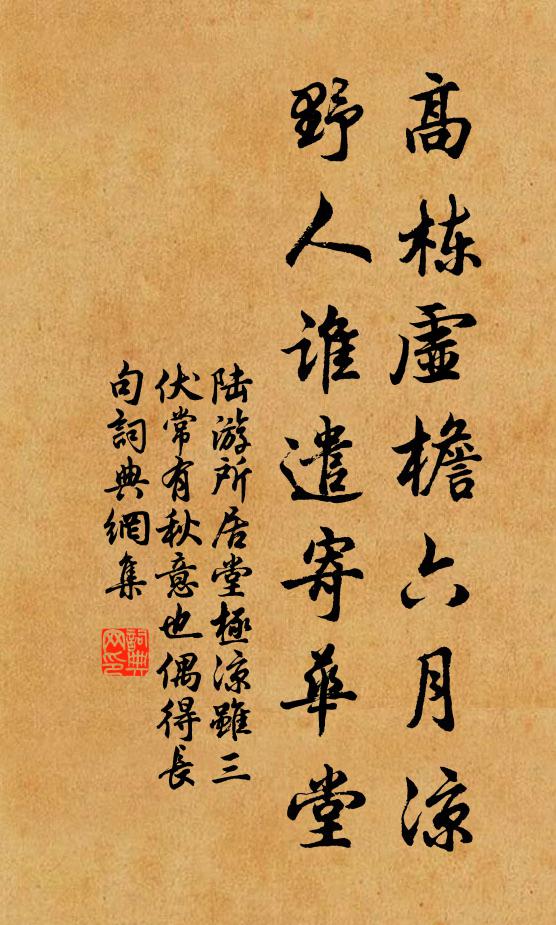 高栋虛檐六月涼
野人谁遣寄華堂
陆游所居堂極涼雖三
伏常有秋意也偶得長
句詞典網集
詞典网印